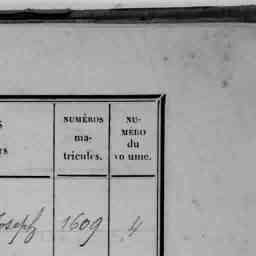 S
es
NUMÉROS
ma-
tricules.
NU-
MÉRO
du
vo ume.
Joseph 1609 4